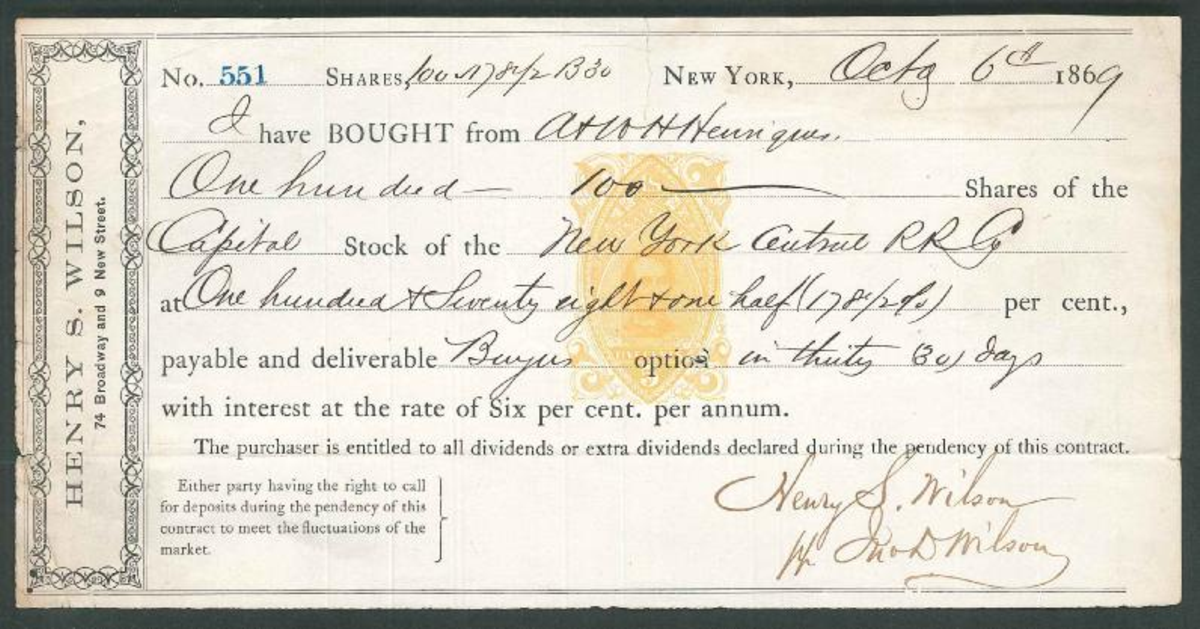 HENRY S. WILSON,
74 Broadway and 9 New Street.
No. 551 SHARES, 100 N 178 1/2 B30 NEW YORK, Octo 6th 1869
I have BOUGHT from A & W H Henriques.
One hundred — 100 — Shares of the
Capital Stock of the New York Central RR Co
at One hundred & Seventy eight & one half (178 1/2 %) per cent.,
payable and deliverable Buyers option in thirty (30) days
with interest at the rate of Six per cent. per annum.
The purchaser is entitled to all dividends or extra dividends declared during the pendency of this contract.
Either party having the right to call
for deposits during the pendency of this
contract to meet the fluctuations of the
market.
Henry S. Wilson
Jno D Wilson